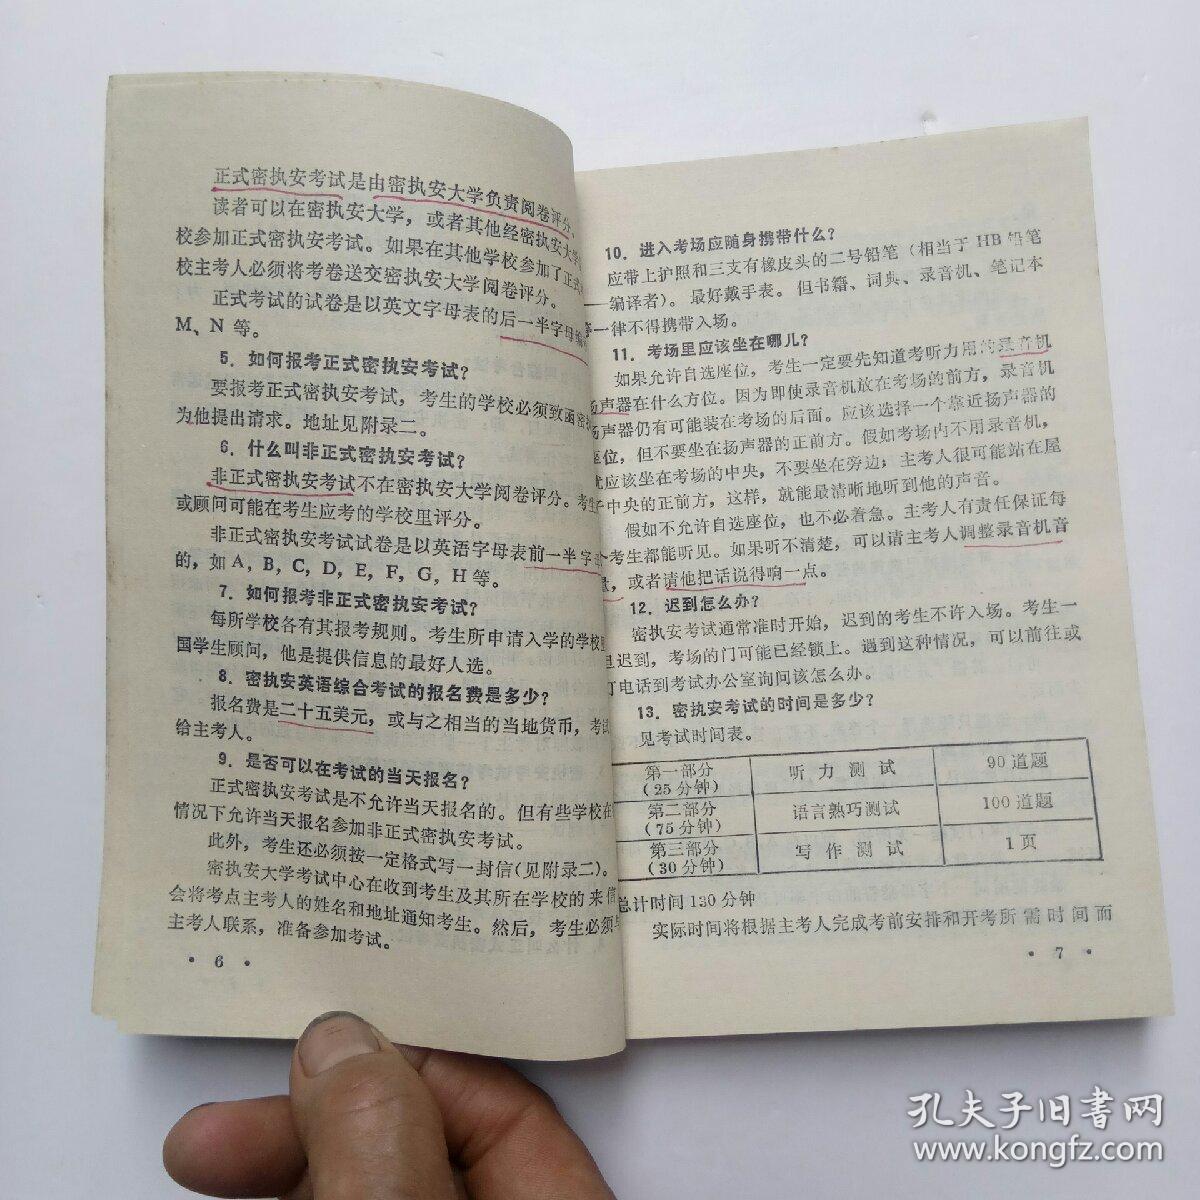 正式密执安考试是由密执安大学负责阅卷评分。
读者可以在密执安大学，或者其他经密执安大学
校参加正式密执安考试。如果在其他学校参加了正式
校主考人必须将考卷送交密执安大学阅卷评分。
正式考试的试卷是以英文字母表的后一半字母编
M、N 等。
5．如何报考正式密执安考试？
要报考正式密执安考试，考生的学校必须致函密
为他提出请求。地址见附录二。
6．什么叫非正式密执安考试？
非正式密执安考试不在密执安大学阅卷评分。考
或顾问可能在考生应考的学校里评分。
非正式密执安考试试卷是以英语字母表前一半字
的，如 A，B，C，D，E，F，G，H 等。
7．如何报考非正式密执安考试？
每所学校各有其报考规则。考生所申请入学的学校
国学生顾问，他是提供信息的最好人选。
8．密执安英语综合考试的报名费是多少？
报名费是二十五美元，或与之相当的当地货币，考试
给主考人。
9．是否可以在考试的当天报名？
正式密执安考试是不允许当天报名的。但有些学校在
情况下允许当天报名参加非正式密执安考试。
此外，考生还必须按一定格式写一封信(见附录二)。
密执安大学考试中心在收到考生及其所在学校的来信
会将考点主考人的姓名和地址通知考生。然后，考生必须
主考人联系，准备参加考试。
• 6 •
10．进入考场应随身携带什么？
应带上护照和三支有橡皮头的二号铅笔（相当于 HB 铅笔
——编译者）。最好戴手表。但书籍、词典、录音机、笔记本
等一律不得携带入场。
11．考场里应该坐在哪儿？
如果允许自选座位，考生一定要先知道考听力用的录音机
扬声器在什么方位。因为即使录音机放在考场的前方，录音机
扬声器仍有可能装在考场的后面。应该选择一个靠近扬声器的
座位，但不要坐在扬声器的正前方。假如考场内不用录音机，
就应该坐在考场的中央，不要坐在旁边；主考人很可能站在屋
子中央的正前方，这样，就能最清晰地听到他的声音。
假如不允许自选座位，也不必着急。主考人有责任保证每
个考生都能听见。如果听不清楚，可以请主考人调整录音机音
量，或者请他把话说得响一点。
12．迟到怎么办？
密执安考试通常准时开始，迟到的考生不许入场。考生一
旦迟到，考场的门可能已经锁上。遇到这种情况，可以前往或
打电话到考试办公室询问该怎么办。
13．密执安考试的时间是多少？
见考试时间表。
第一部分（25分钟） 听 力 测 试 90道题
第二部分（75分钟） 语言熟巧测试 100道题
第三部分（30分钟） 写 作 测 试 1页
总计时间130分钟
实际时间将根据主考人完成考前安排和开考所需时间而
• 7 •
孔夫子旧书网
www.kongfz.com